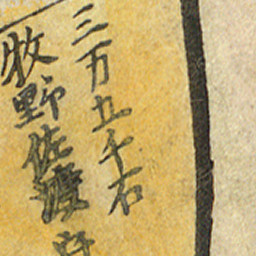 三万五千石
牧野佐渡守